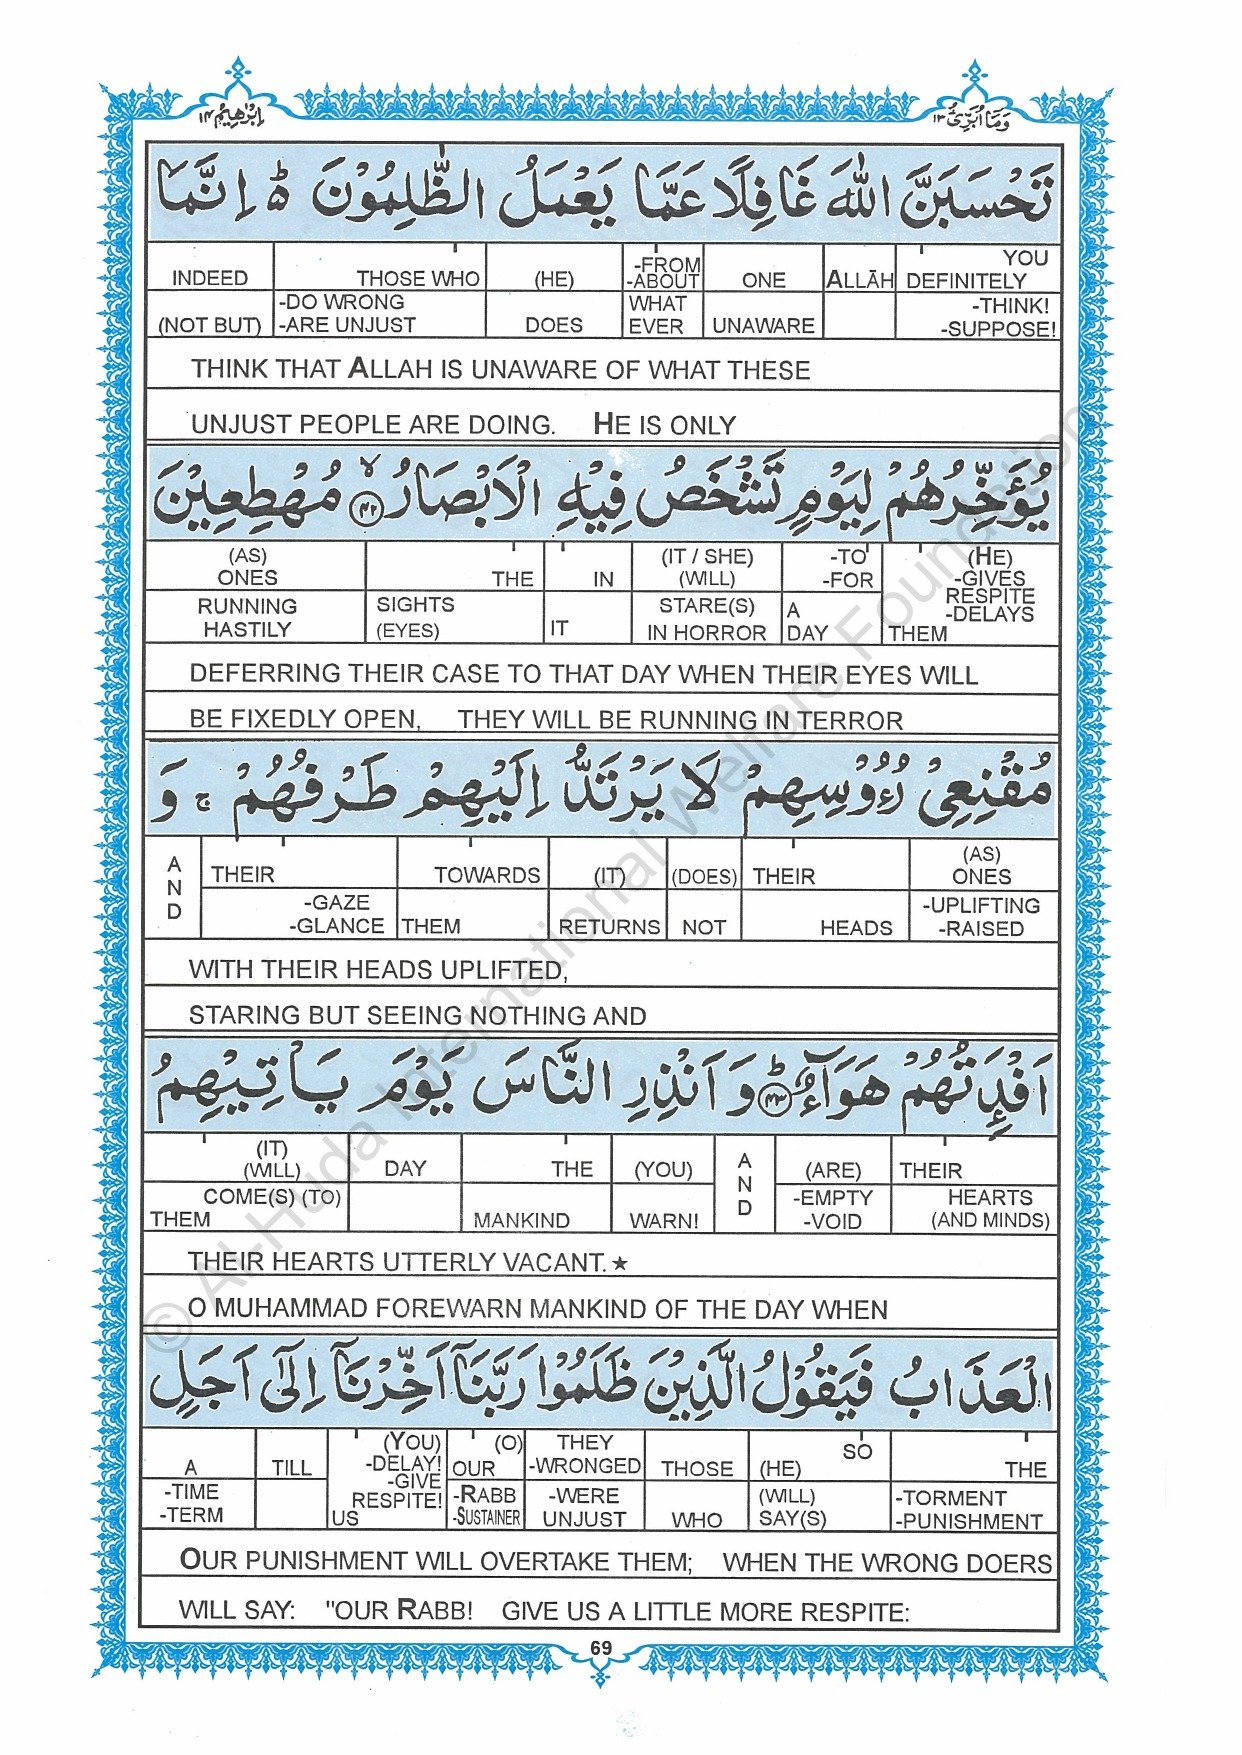 اِبْرٰهِيْمُ ١٤
وَمَا اُبَرِّئُ ١٣
تَحْسَبَنَّ اللّٰهَ غَافِلًا عَمَّا يَعْمَلُ الظّٰلِمُوْنَ ؕ اِنَّمَا
INDEED THOSE WHO (HE) -FROM -ABOUT ONE ALLĀH YOU DEFINITELY
(NOT BUT) -DO WRONG -ARE UNJUST DOES WHAT EVER UNAWARE -THINK! -SUPPOSE!
THINK THAT ALLAH IS UNAWARE OF WHAT THESE
UNJUST PEOPLE ARE DOING. HE IS ONLY
يُؤَخِّرُهُمْ لِيَوْمٍ تَشْخَصُ فِيْهِ الْاَبْصَارُ ۙ﴿٤٢﴾ مُهْطِعِيْنَ
(AS) ONES THE IN (IT / SHE) (WILL) -TO -FOR (HE) -GIVES RESPITE -DELAYS
RUNNING HASTILY SIGHTS (EYES) IT STARE(S) IN HORROR A DAY THEM
DEFERRING THEIR CASE TO THAT DAY WHEN THEIR EYES WILL
BE FIXEDLY OPEN, THEY WILL BE RUNNING IN TERROR
مُقْنِعِيْ رُءُوْسِهِمْ لَا يَرْتَدُّ اِلَيْهِمْ طَرْفُهُمْ ۚ وَ
AND THEIR TOWARDS (IT) (DOES) THEIR (AS) ONES
-GAZE -GLANCE THEM RETURNS NOT HEADS -UPLIFTING -RAISED
WITH THEIR HEADS UPLIFTED,
STARING BUT SEEING NOTHING AND
اَفْـِٕدَتُهُمْ هَوَآءٌ ؕ﴿٤٣﴾ وَ اَنْذِرِ النَّاسَ يَوْمَ يَاْتِيْهِمُ
(IT) (WILL) DAY THE (YOU) AND (ARE) THEIR
COME(S) (TO) THEM MANKIND WARN! -EMPTY -VOID HEARTS (AND MINDS)
THEIR HEARTS UTTERLY VACANT.★
O MUHAMMAD FOREWARN MANKIND OF THE DAY WHEN
الْعَذَابُ فَيَقُوْلُ الَّذِيْنَ ظَلَمُوْا رَبَّنَاۤ اَخِّرْنَاۤ اِلٰۤى اَجَلٍ
A TILL (YOU) -DELAY! -GIVE RESPITE! (O) OUR THEY -WRONGED THOSE (HE) SO THE
-TIME -TERM US -RABB -SUSTAINER -WERE UNJUST WHO (WILL) SAY(S) -TORMENT -PUNISHMENT
OUR PUNISHMENT WILL OVERTAKE THEM; WHEN THE WRONG DOERS
WILL SAY: "OUR RABB! GIVE US A LITTLE MORE RESPITE:
69
© Al-Huda International Welfare Foundation